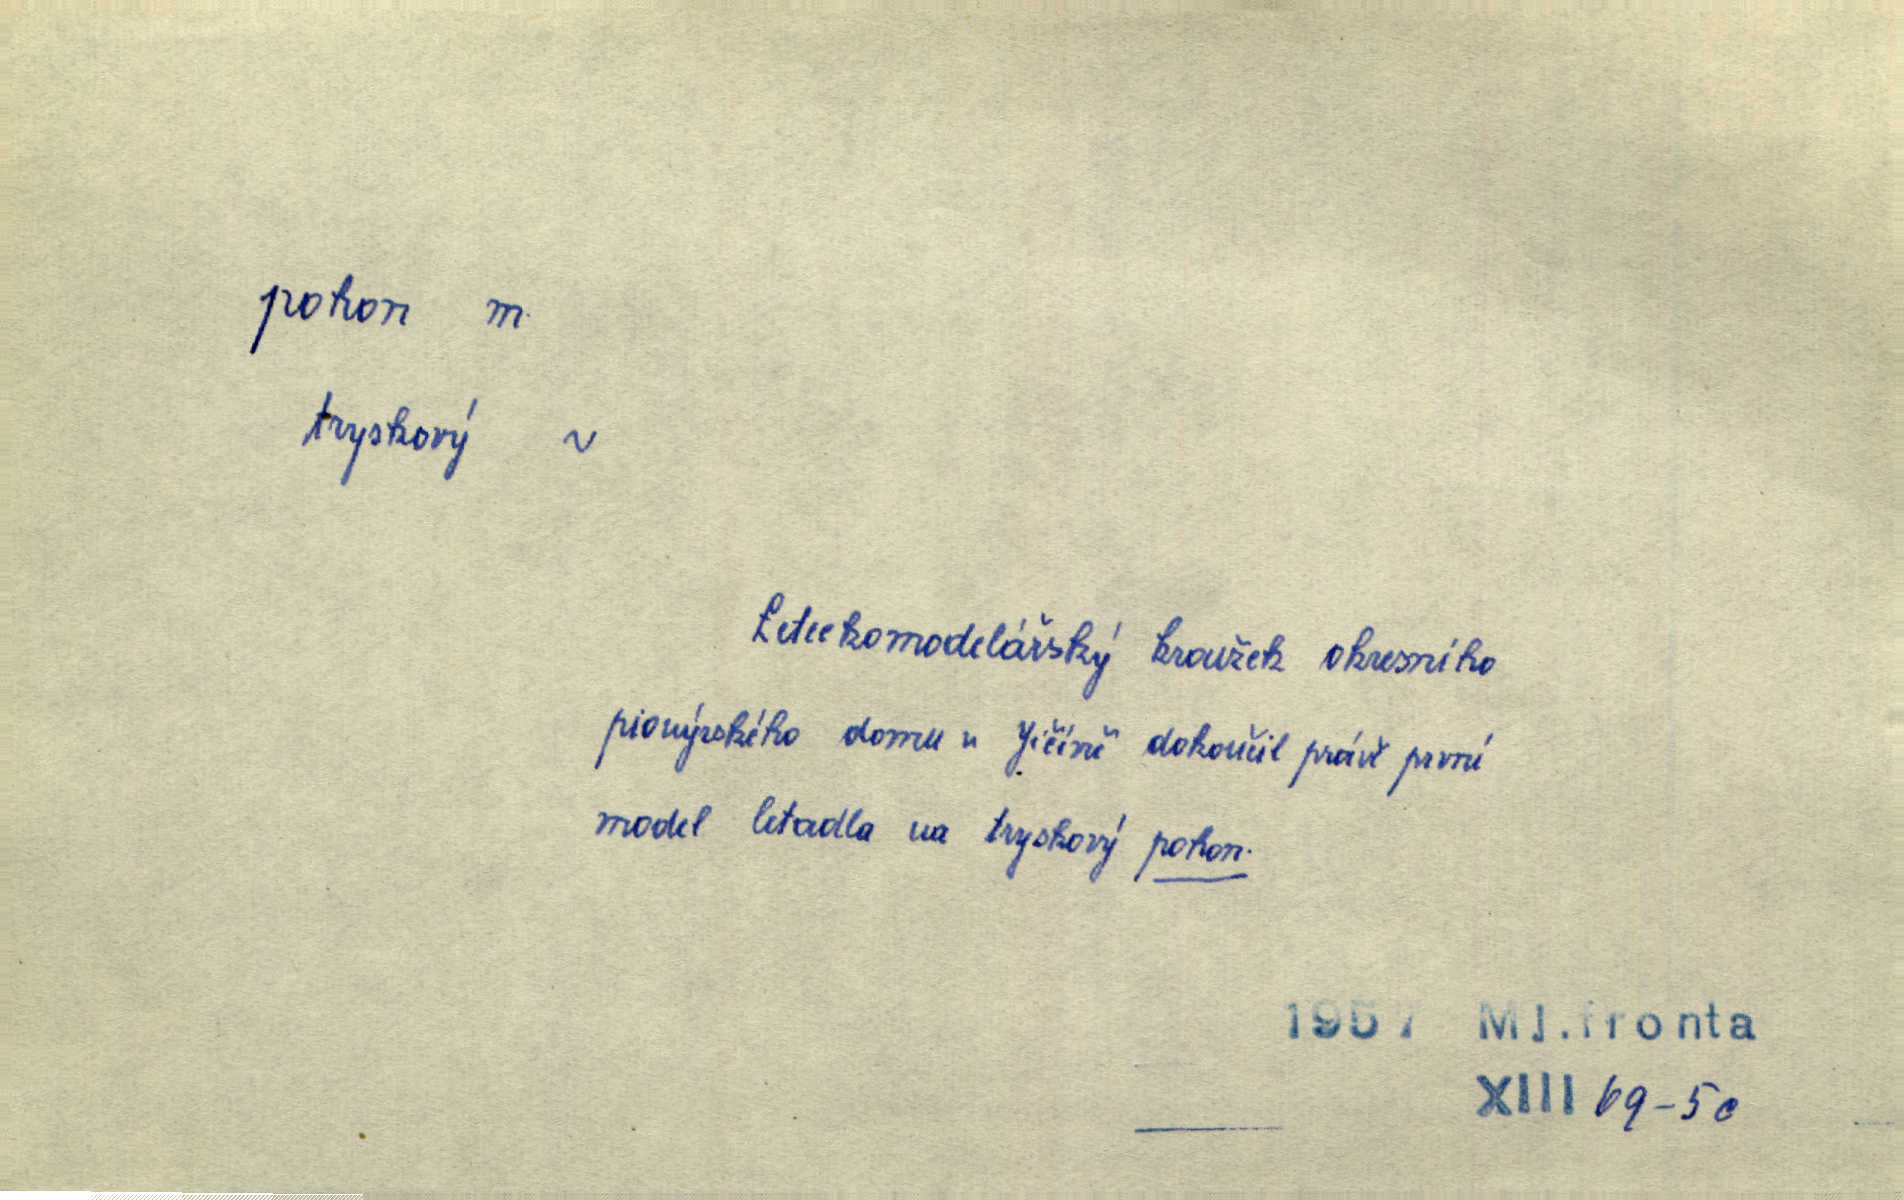 pohon m.
tryskový ~
Leteckomodelářský kroužek okresního
pionýrského domu v Jičíně dokončil právě první
model letadla na tryskový pohon.
1957 Ml.fronta
XIII 69-5c